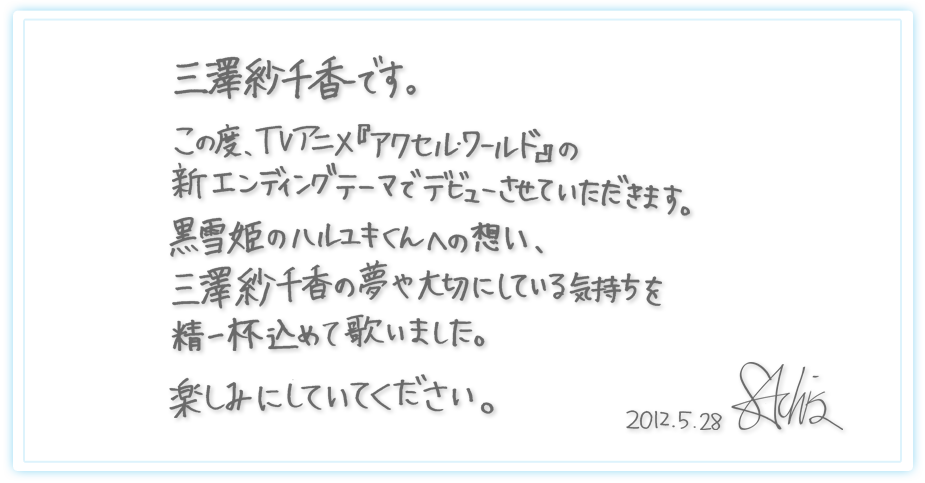 三澤紗千香です。
この度、TVアニメ『アクセル・ワールド』の
新エンディングテーマでデビューさせていただきます。
黒雪姫のハルユキくんへの想い、
三澤紗千香の夢や大切にしている気持ちを
精一杯込めて歌いました。
楽しみにしていてください。
2012.5.28 Sachika